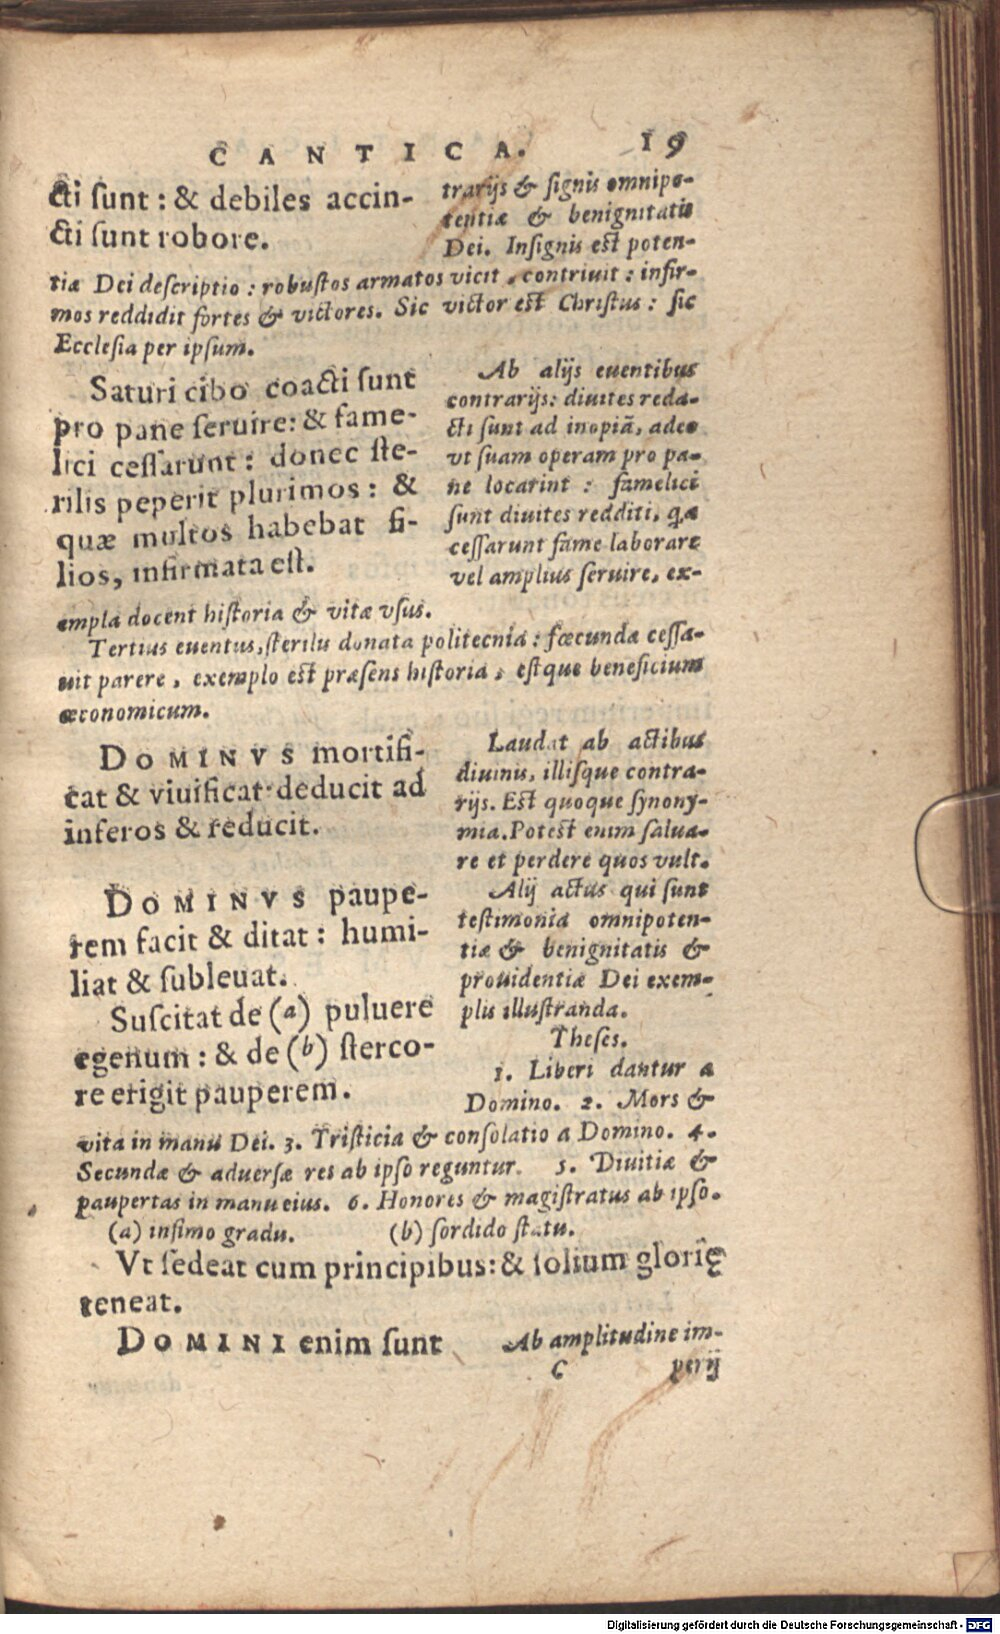 CANTICA. 19
cti sunt : & debiles accin-
cti sunt robore.
trarijs & signis omnipo-
tentiæ & benignitatis
Dei. Insignis est poten-
tiæ Dei descriptio : robustos armatos vicit, contriuit : infir-
mos reddidit fortes & victores. Sic victor est Christus : sic
Ecclesia per ipsum.
Saturi cibo coacti sunt
pro pane seruire: & fame-
lici cessarunt : donec ste-
rilis peperit plurimos : &
quæ multos habebat fi-
lios, infirmata est.
Ab alijs euentibus
contrarijs: diuites reda-
cti sunt ad inopiã, adeo
vt suam operam pro pa-
ne locarint : famelici
sunt diuites redditi, q,a
cessarunt fame laborare
vel amplius seruire, ex-
empla docent historia & vitæ vsus.
Tertius euentus, sterilis donata politecnia : fœcunda cessa-
uit parere, exemplo est præsens historia, estque beneficium
œconomicum.
DOMINVS mortifi-
cat & viuificat: deducit ad
inferos & reducit.
Laudat ab actibus
diuinis, illisque contra-
rijs. Est quoque synony-
mia. Potest enim salua-
re et perdere quos vult.
DOMINVS paupe-
rem facit & ditat : humi-
liat & subleuat.
Suscitat de (a) puluere
egenum : & de (b) sterco-
re erigit pauperem.
Alij actus qui sunt
testimonia omnipoten-
tiæ & benignitatis &
prouidentiæ Dei exem-
plis illustranda.
Theses.
1. Liberi dantur a
Domino. 2. Mors &
vita in manu Dei. 3. Tristicia & consolatio a Domino. 4.
Secundæ & aduersæ res ab ipso reguntur. 5. Diuitiæ &
paupertas in manu eius. 6. Honores & magistratus ab ipso.
(a) infimo gradu. (b) sordido statu.
Vt sedeat cum principibus: & solium glorię
teneat.
DOMINI enim sunt
Ab amplitudine im-
C perij
Digitalisierung gefördert durch die Deutsche Forschungsgemeinschaft - DFG